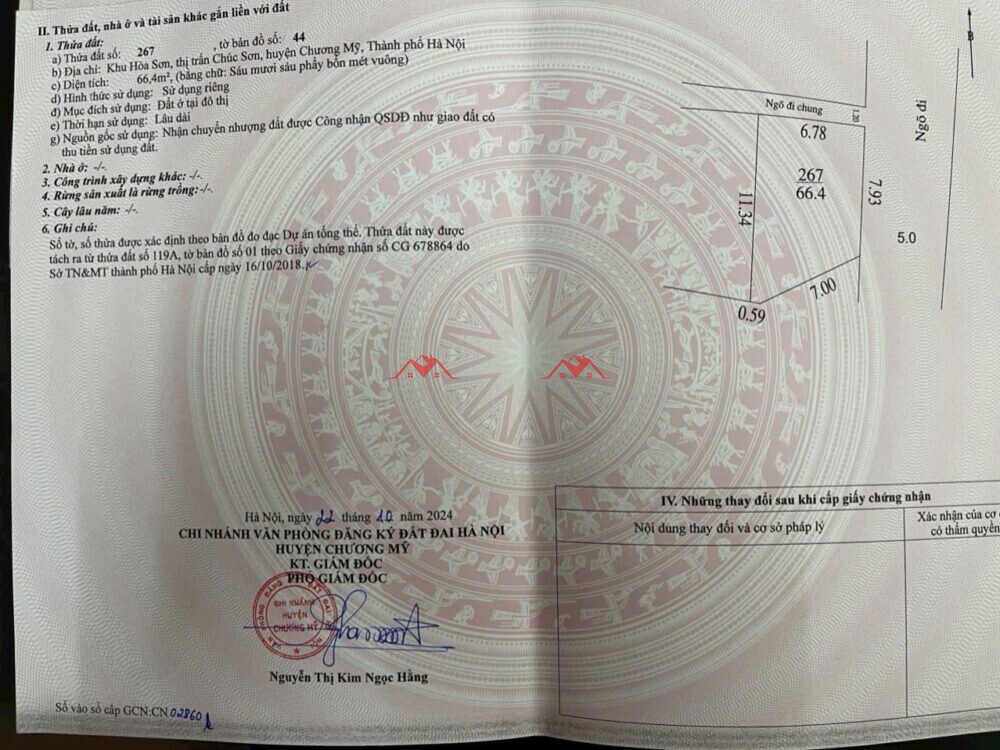 II. Thửa đất, nhà ở và tài sản khác gắn liền với đất
1. Thửa đất:
a) Thửa đất số: 267 , tờ bản đồ số: 44
b) Địa chỉ: Khu Hòa Sơn, thị trấn Chúc Sơn, huyện Chương Mỹ, Thành phố Hà Nội
c) Diện tích: 66,4m², (bằng chữ: Sáu mươi sáu phẩy bốn mét vuông)
d) Hình thức sử dụng: Sử dụng riêng
đ) Mục đích sử dụng: Đất ở tại đô thị
e) Thời hạn sử dụng: Lâu dài
g) Nguồn gốc sử dụng: Nhận chuyển nhượng đất được Công nhận QSDĐ như giao đất có
thu tiền sử dụng đất.
2. Nhà ở: -/-.
3. Công trình xây dựng khác: -/-.
4. Rừng sản xuất là rừng trồng:-/-.
5. Cây lâu năm: -/-.
6. Ghi chú:
Số tờ, số thửa được xác định theo bản đồ đo đạc Dự án tổng thể. Thửa đất này được
tách ra từ thửa đất số 119A, tờ bản đồ số 01 theo Giấy chứng nhận số CG 678864 do
Sở TN&MT thành phố Hà Nội cấp ngày 16/10/2018.
B
Ngõ đi chung
1.20
Ngõ đi
6.78
267
66.4
11.34
7.93
5.0
7.00
0.59
Hà Nội, ngày 22 tháng 10 năm 2024
CHI NHÁNH VĂN PHÒNG ĐĂNG KÝ ĐẤT ĐAI HÀ NỘI
HUYỆN CHƯƠNG MỸ
KT. GIÁM ĐỐC
PHÓ GIÁM ĐỐC
VĂN PHÒNG ĐĂNG KÝ ĐẤT ĐAI HÀ NỘI
CHI NHÁNH
HUYỆN
CHƯƠNG MỸ
Nguyễn Thị Kim Ngọc Hằng
Số vào sổ cấp GCN:CN 02860
IV. Những thay đổi sau khi cấp giấy chứng nhận
Nội dung thay đổi và cơ sở pháp lý
Xác nhận của cơ
có thẩm quyền